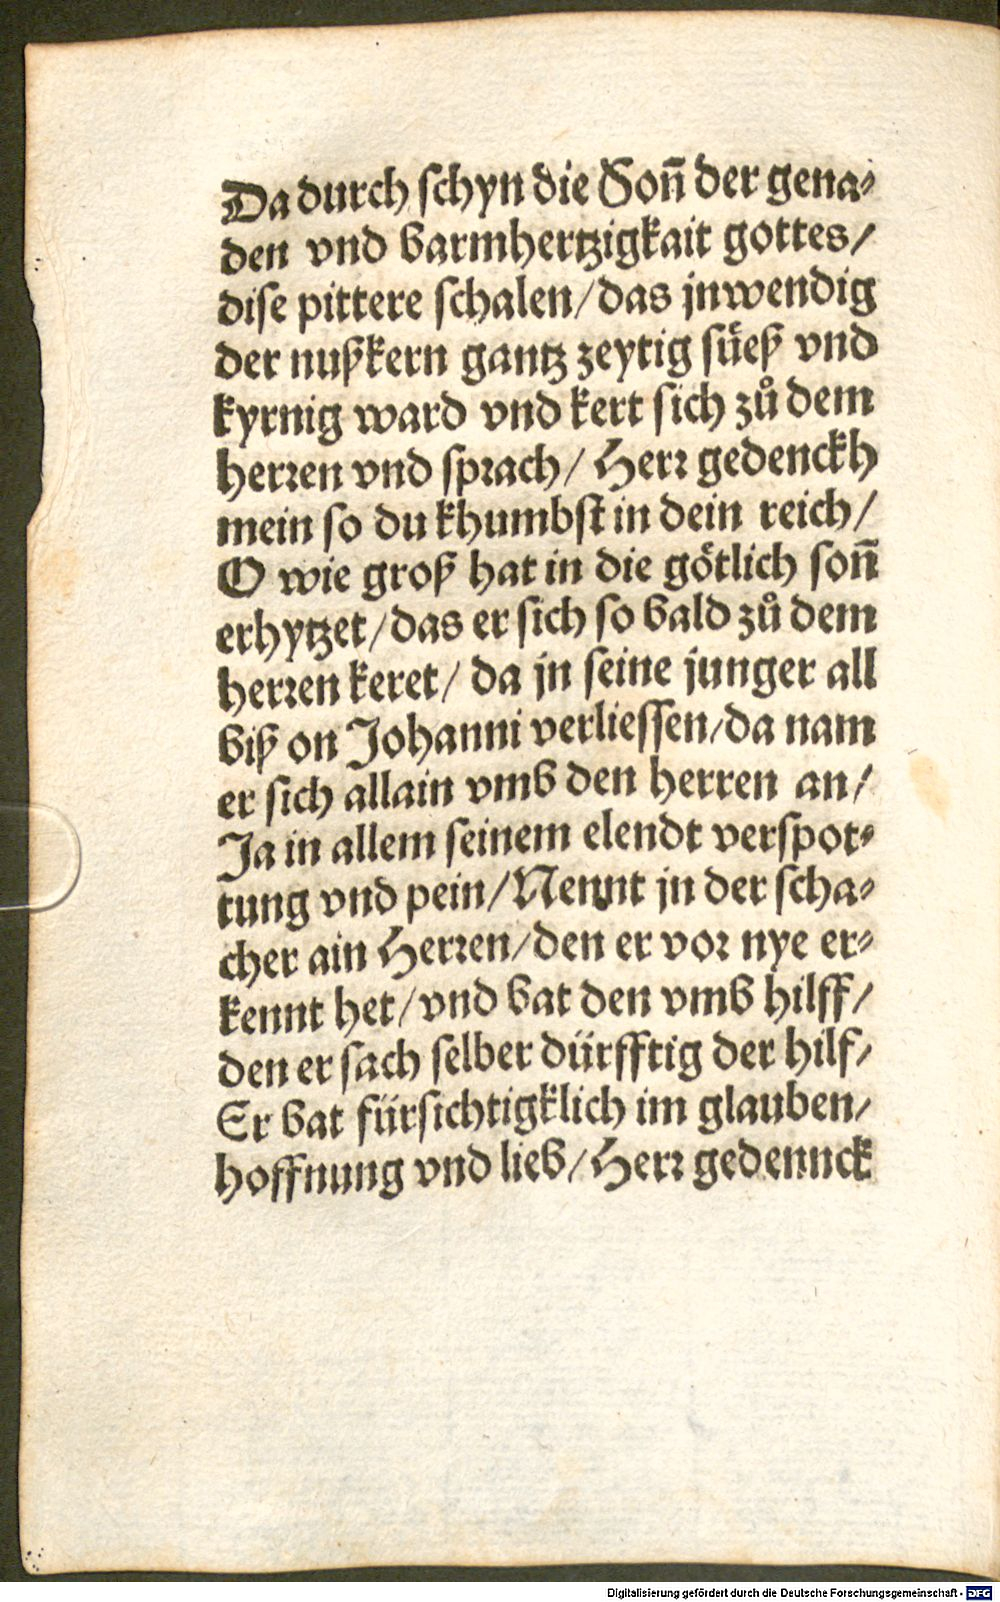 Da durch schyn die Son̄ der gena⸗
den vnd barmhertzigkait gottes/
dise pittere schalen/das jnwendig
der nußkern gantz zeytig süeß vnd
kyrnig ward vnd kert sich zů dem
herren vnd sprach/ Herr gedenckh
mein so du khumbst in dein reich/
O wie groß hat in die götlich son̄
erhytzet/das er sich so bald zů dem
herren keret/ da jn seine junger all
biß on Johanni verliessen/da nam
er sich allain vmb den herren an/
Ja in allem seinem elendt verspot⸗
tung vnd pein/Nennt jn der scha⸗
cher ain Herren/den er vor nye er⸗
kennt het/vnd bat den vmb hilff/
den er sach selber dürfftig der hilf/
Er bat fürsichtigklich im glauben/
hoffnung vnd lieb/Herr gedennck
Digitalisierung gefördert durch die Deutsche Forschungsgemeinschaft - DFG